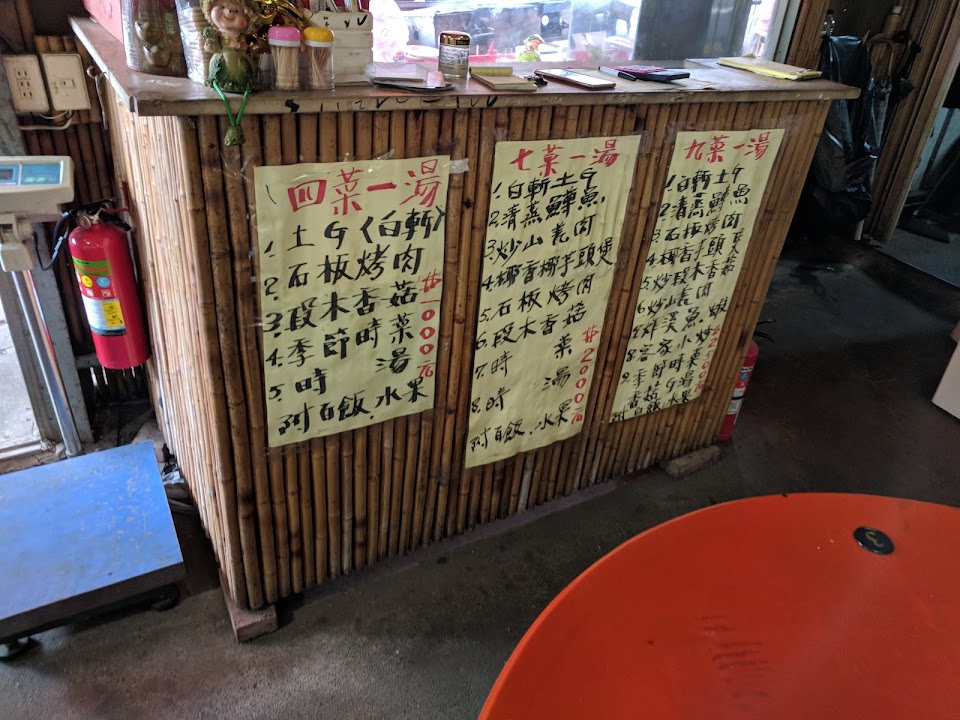 四菜一湯
1. 土G(白斬)
2. 石板烤肉
3. 段木香菇
4. 季節時菜
5. 時湯
附白飯.水果
#1000元
七菜一湯
1. 白斬土G
2. 清蒸鱒魚
3. 炒山羌肉
4. 椰香椰芋頭煲
5. 石板烤肉
6. 段木香菇
7. 時菜
8. 時湯
附白飯.水果
#2000元
九菜一湯
1. 白斬土G
2. 清蒸鱒魚
3. 石板烤肉
4. 椰香芋頭
5. 段木香菇
6. 炒山羌肉
魚蝦
8. 客家小炒
9. 季節時菜
香菇G湯
附白飯.水果
2500元